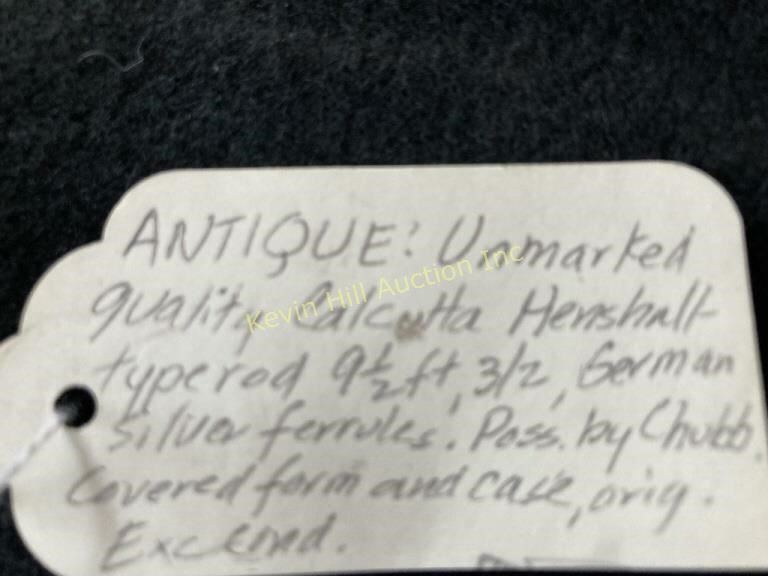 ANTIQUE: Unmarked
quality Calcutta Henshall-
type rod 9½ ft, 3/2, German
silver ferrules. Poss. by Chubb.
Covered form and case, orig.
Exc Cond.
Kevin Hill Auction Inc